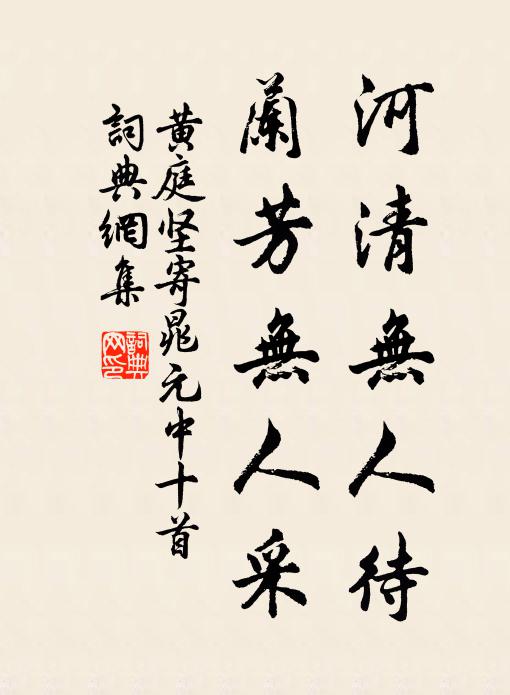 河清無人待
蘭芳無人采
黃庭坚寄晁元中十首
詞典網集
詞典网印